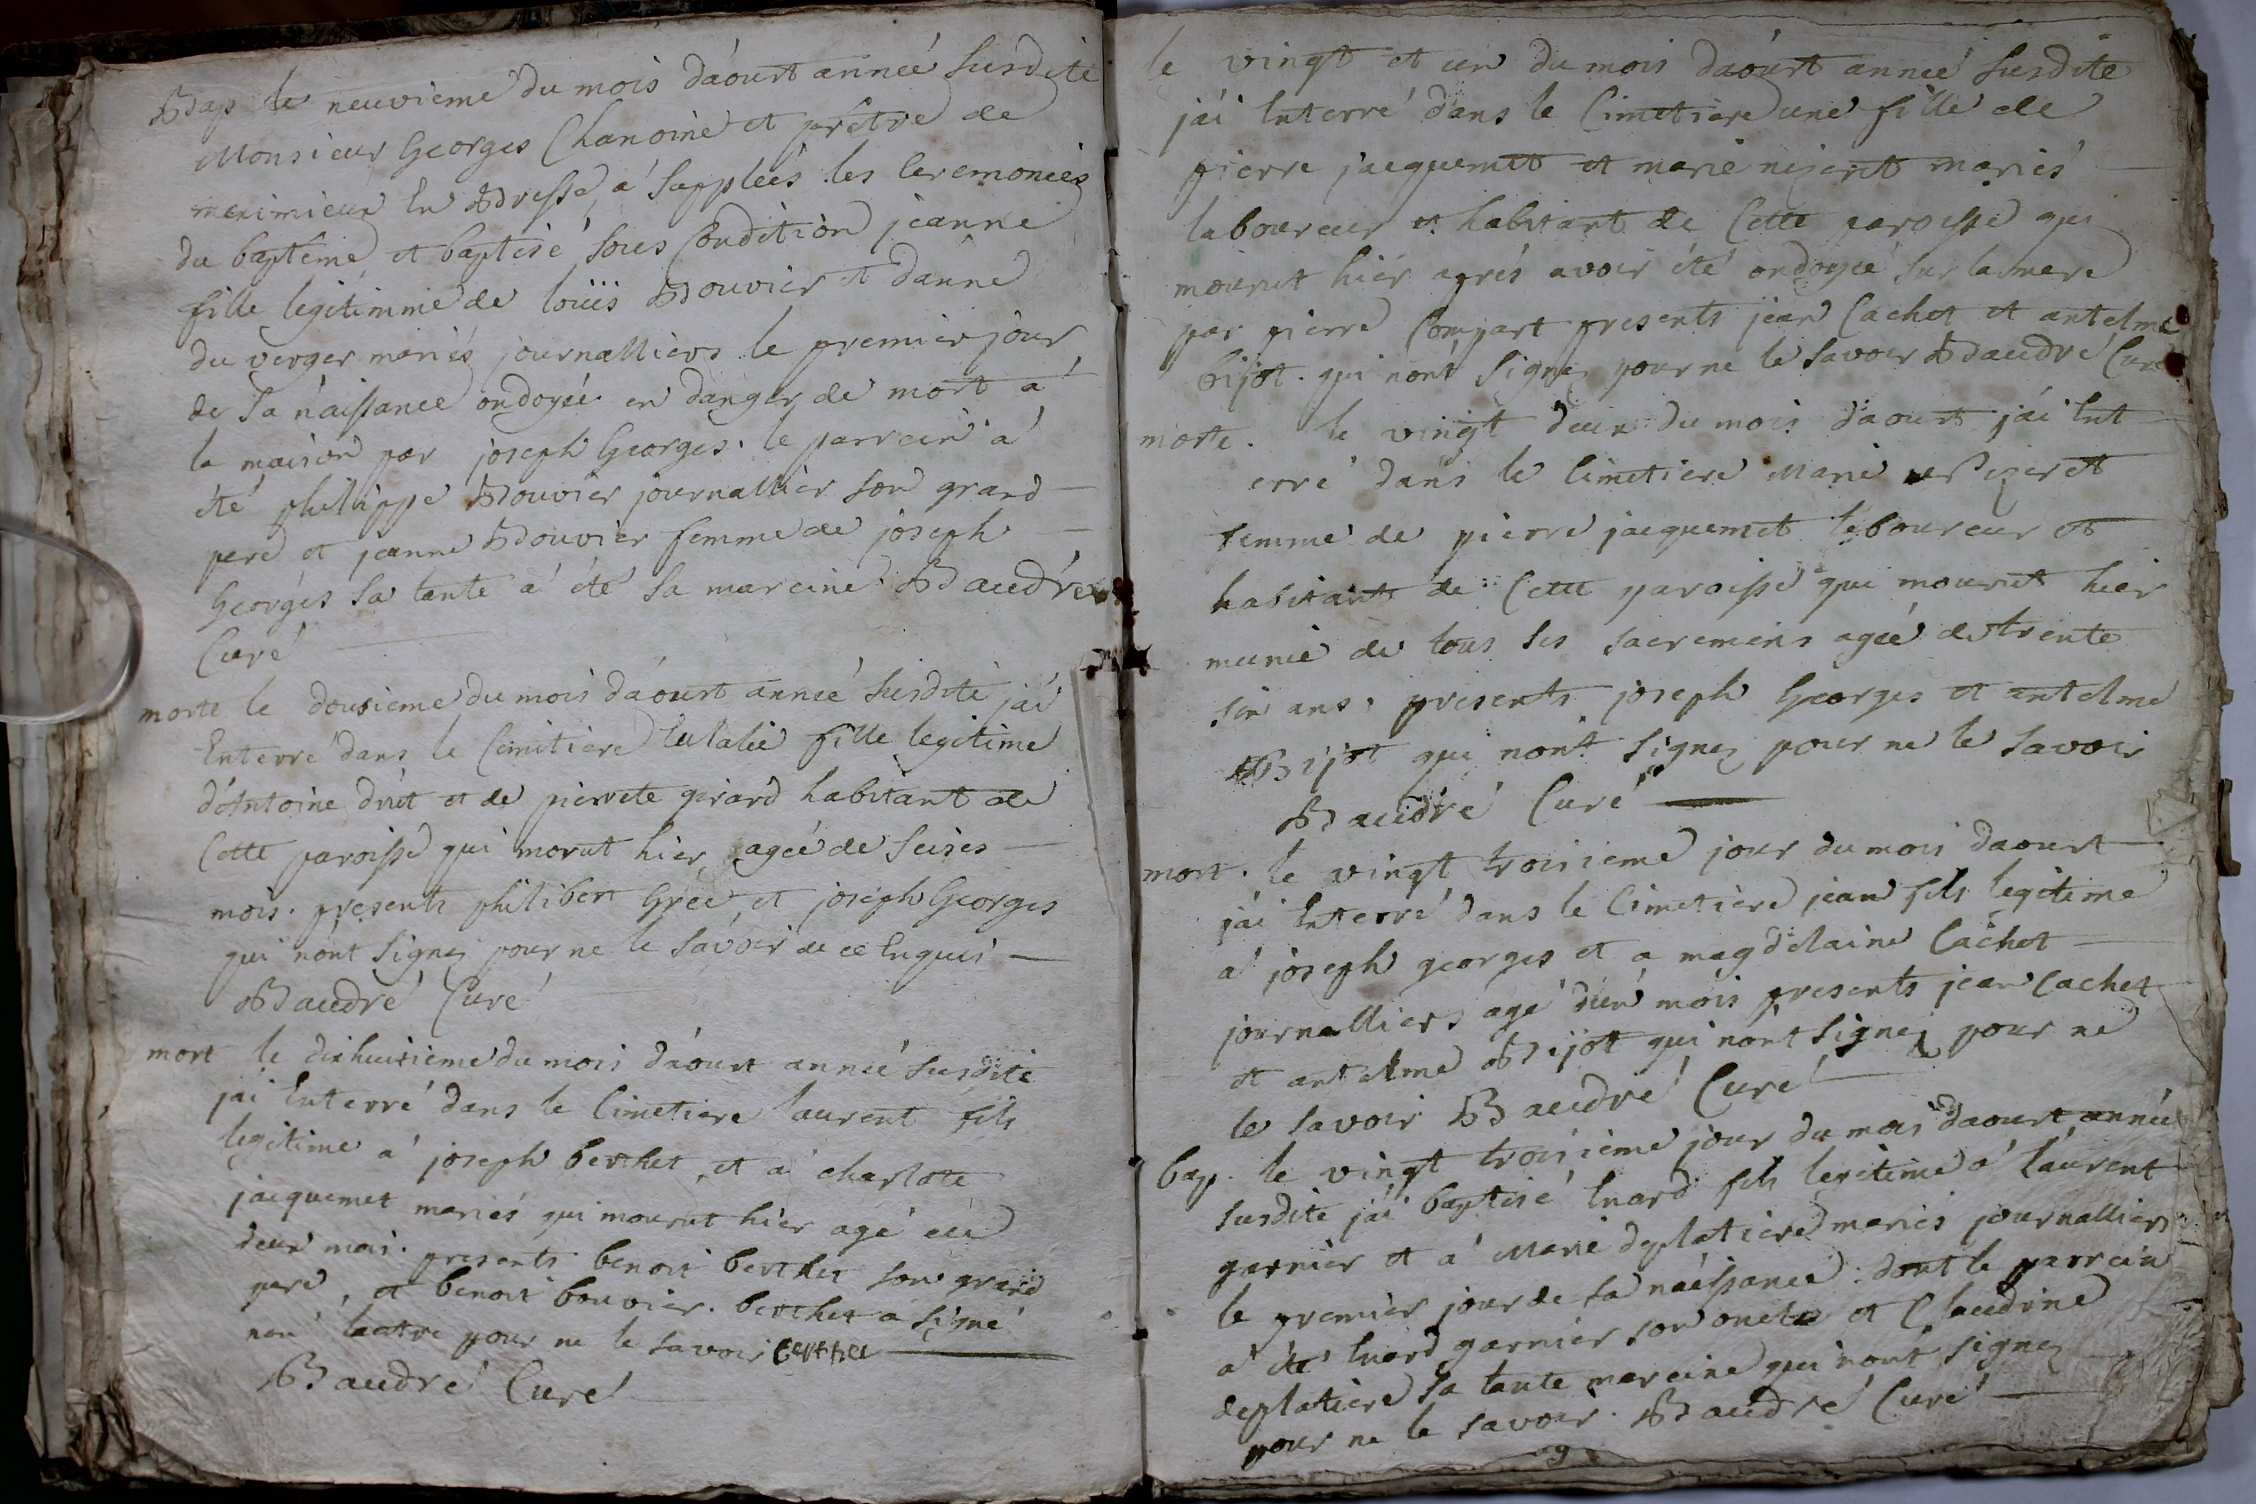 Bap le neuvieme du mois d'áoust anneé susdite
Monsieur Georges Chanoine et prêtre de
meximieux En Bresse, a' suppleés les Ceremonies
du baptême et baptisé sous Condition jeanne
fille legitimme de loüis Bouvier et d'anne
du verger mariés journalliers le premier jour
de sa naissance ondoyeé en danger de mort a'
la maison par joseph Georges. le parrein a'
été philippe Bouvier journallier son grand
pere et jeanne Bouvier femme de joseph
Georges sa tante a' été sa mareine. Baudré
Curé
morte le dousieme du mois d'áoust anneé susdite j'ai
Enterré dans le Cimitiere Eulalie fille legitime
d'Antoine drut et de pierrete girard habitant de
Cette paroisse qui morut hier, ageé de seises
mois. presents philibert Greé, et joseph Georges
qui n'ont signez pour ne le savoir de ce Enquis
Baudré Curé
mort le dixhuitieme du mois d'áoust anneé susdite
j'ai Enterré dans le Cimetiere laurent fils
legitime a' joseph berthet, et a' charlote
jacquemet mariés qui mourut hier agé de
deux mois. presents benoit berthet son grand
pere, et benoit bouvier. berthet a signé
non l'autre pour ne le savoir berthet
Baudré Curé
le vingt et un du mois d'áoust anneé susdite
j'ai Enterré dans le Cimetiere une fille de
pierre jacquemet et marie mariés
laboureur et habitant de Cette paroisse qui
mourut hiér aprés avoir été ondoyeé sur la mere
par pierre Compart presents jean Cachet et antelme
bijot. qui n'ont signez pour ne le savoir Baudré Curé
morte. le vingt deux du mois d'aoust j'ai Ent
erré dans le Cimetiere Marie
femme de pierre jacquemet laboureur et
habitant de Cette paroisse qui mourut hier
munie de tous ses sacremens ageé de trente
six ans. presents joseph Georges et antelme
Bijot qui n'ont signez pour ne le savoir
Baudré Curé
mort. le vingt troisieme jour du mois d'aoust
j'ai Enterré dans le Cimetiere jean fils legitime
a' joseph georges et a magdelaine Cachet
journalliers agé d'un mois presents jean Cachet
et antelme Bijot qui n'ont signez pour ne
le savoir Baudré Curé
bap. le vingt troisieme jour du mois d'aoust anneé
susdite j'ai baptisé Enard fils legitime a' laurent
garnier et a' Marie deplatiere mariés journalliers
le premier jour de sa naissance. dont le parrein
a été Enard garnier son oncle et Claudine
deplatiere sa tante mareine qui n'ont signez
pour ne le savoir. Baudré Curé